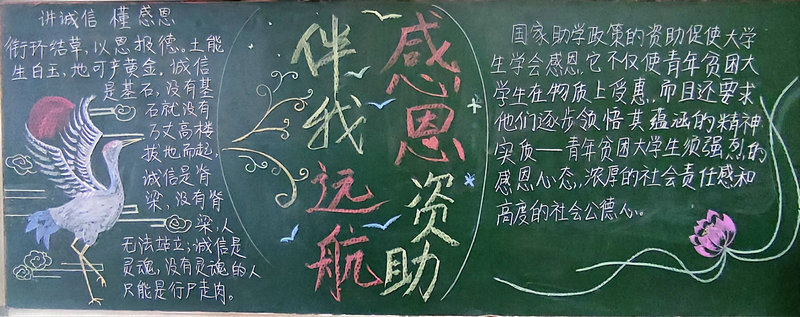 讲诚信 懂感恩
衔环结草,以恩报德。土能
生白玉,地可产黄金。诚信
是基石,没有基
石就没有
万丈高楼
拔地而起,
诚信是脊
梁,没有脊
梁,人
无法站立;诚信是
灵魂,没有灵魂的人
只能是行尸走肉。
感恩资助
伴我远航
国家助学政策的资助促使大学
生学会感恩。它不仅使青年贫困大
学生在物质上受惠,而且还要求
他们逐步领悟其蕴涵的精神
实质——青年贫困大学生须强烈的
感恩心态,浓厚的社会责任感和
高度的社会公德心。